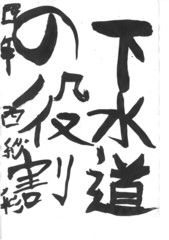 下水道
の役割
四年 西 彩